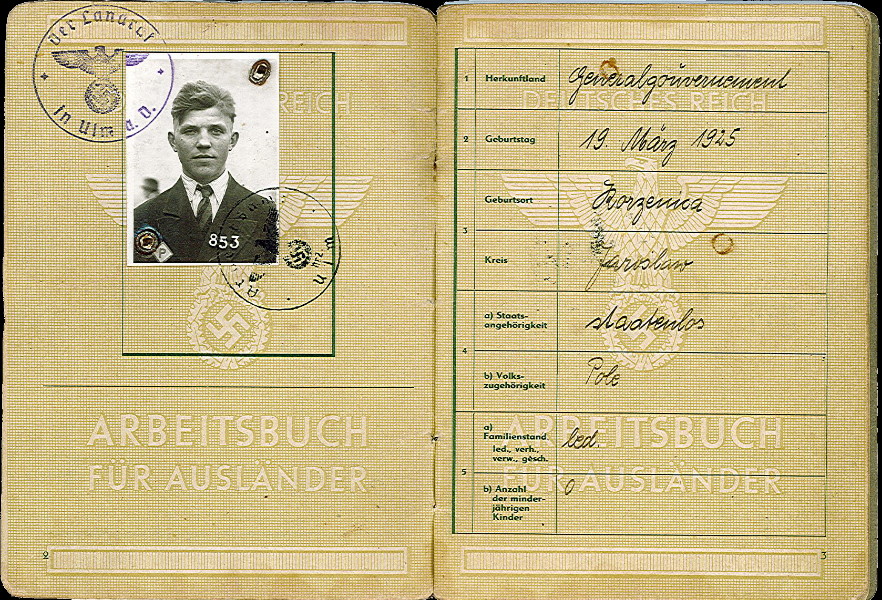 Der Landrat
in Ulm a. D.
REICH
853
P
ARBEITSBUCH
FÜR AUSLÄNDER
2
DEUTSCHES REICH
1 Herkunftland Generalgouvernement
2 Geburtstag 19. März 1925
Geburtsort Korzenica
3
Kreis Jaroslaw
a) Staats-
angehörigkeit staatenlos
4
b) Volks-
zugehörigkeit Pole
a)
Familienstand led.
led., verh.,
verw., gesch.
5
b) Anzahl 0
der minder-
jährigen
Kinder
ARBEITSBUCH
FÜR AUSLÄNDER
3